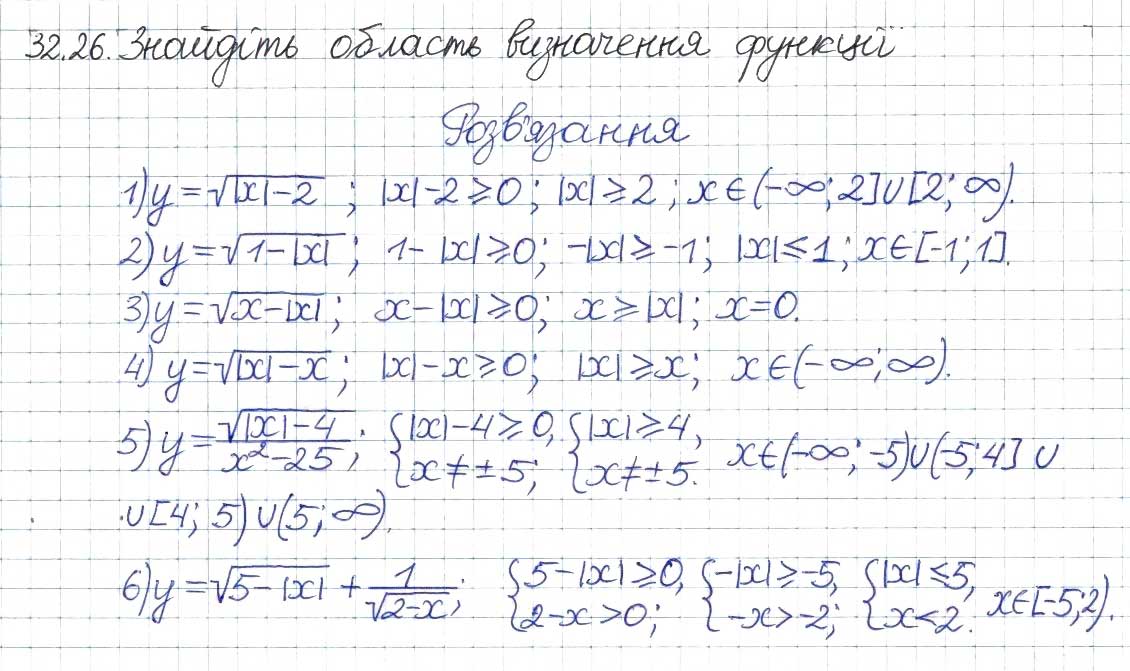 32.26. Знайдіть область визначення функції
Розв'язання
1) y = √|x|-2 ; |x|-2 ⩾ 0; |x| ⩾ 2; x ∈ (-∞; 2]∪[2; ∞).
2) y = √1-|x| ; 1-|x| ⩾ 0; -|x| ⩾ -1; |x| ⩽ 1; x ∈ [-1; 1].
3) y = √x-|x| ; x-|x| ⩾ 0; x ⩾ |x|; x = 0.
4) y = √|x|-x ; |x|-x ⩾ 0; |x| ⩾ x; x ∈ (-∞; ∞).
5) y = √|x|-4 / x²-25 ; { |x|-4 ⩾ 0, x ≠ ±5; { |x| ⩾ 4, x ≠ ±5. x ∈ (-∞; -5)∪(-5; 4] ∪
∪[4; 5)∪(5; ∞).
6) y = √5-|x| + 1/√2-x ; { 5-|x| ⩾ 0, 2-x > 0; { -|x| ⩾ -5, -x > -2; { |x| ⩽ 5, x < 2. x ∈ [-5; 2).